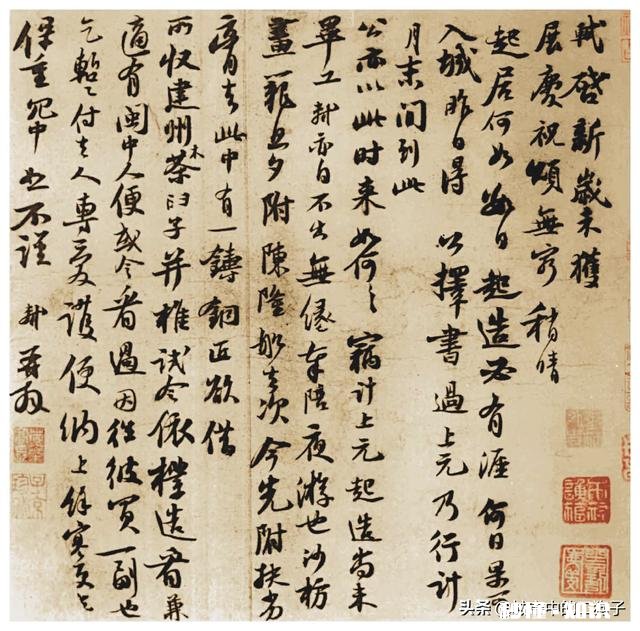 軾啓新歲未獲
展慶祝頌無窮稍晴
起居何如數日起造必有涯何日果可
入城昨日得公擇書過上元乃行計
月末間到此
公亦以此时来如何々竊計上元起造尚未
畢工軾亦自不出無緣奉陪夜游也沙枋
畫籠旦夕附陳隆舡去次今先附扶劣
膏去此中有一鑄銅匠欲借
所收建州木茶臼子并椎試令依樣造看兼
適有閩中人便或令看過因往彼買一副也
乞暫付去人專愛護便納上餘寒更乞
保重冗中恕不謹 軾再拜
头条